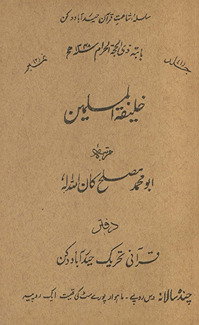 سلسلہ اشاعت قرآن حیدرآباد دکن
بابتہ ذی الحجۃ الحرام
جلد (۱)
نمبر
خلیفۃ المسلمین
مرتبہ
ابو محمد مصلح کان اللہ لہٗ
دفتر
قرآنی تحریک حیدرآباد دکن
چندہ سالانہ دس روپے ۔ ماہوار پورے سٹ کی قیمت ایک روپیہ